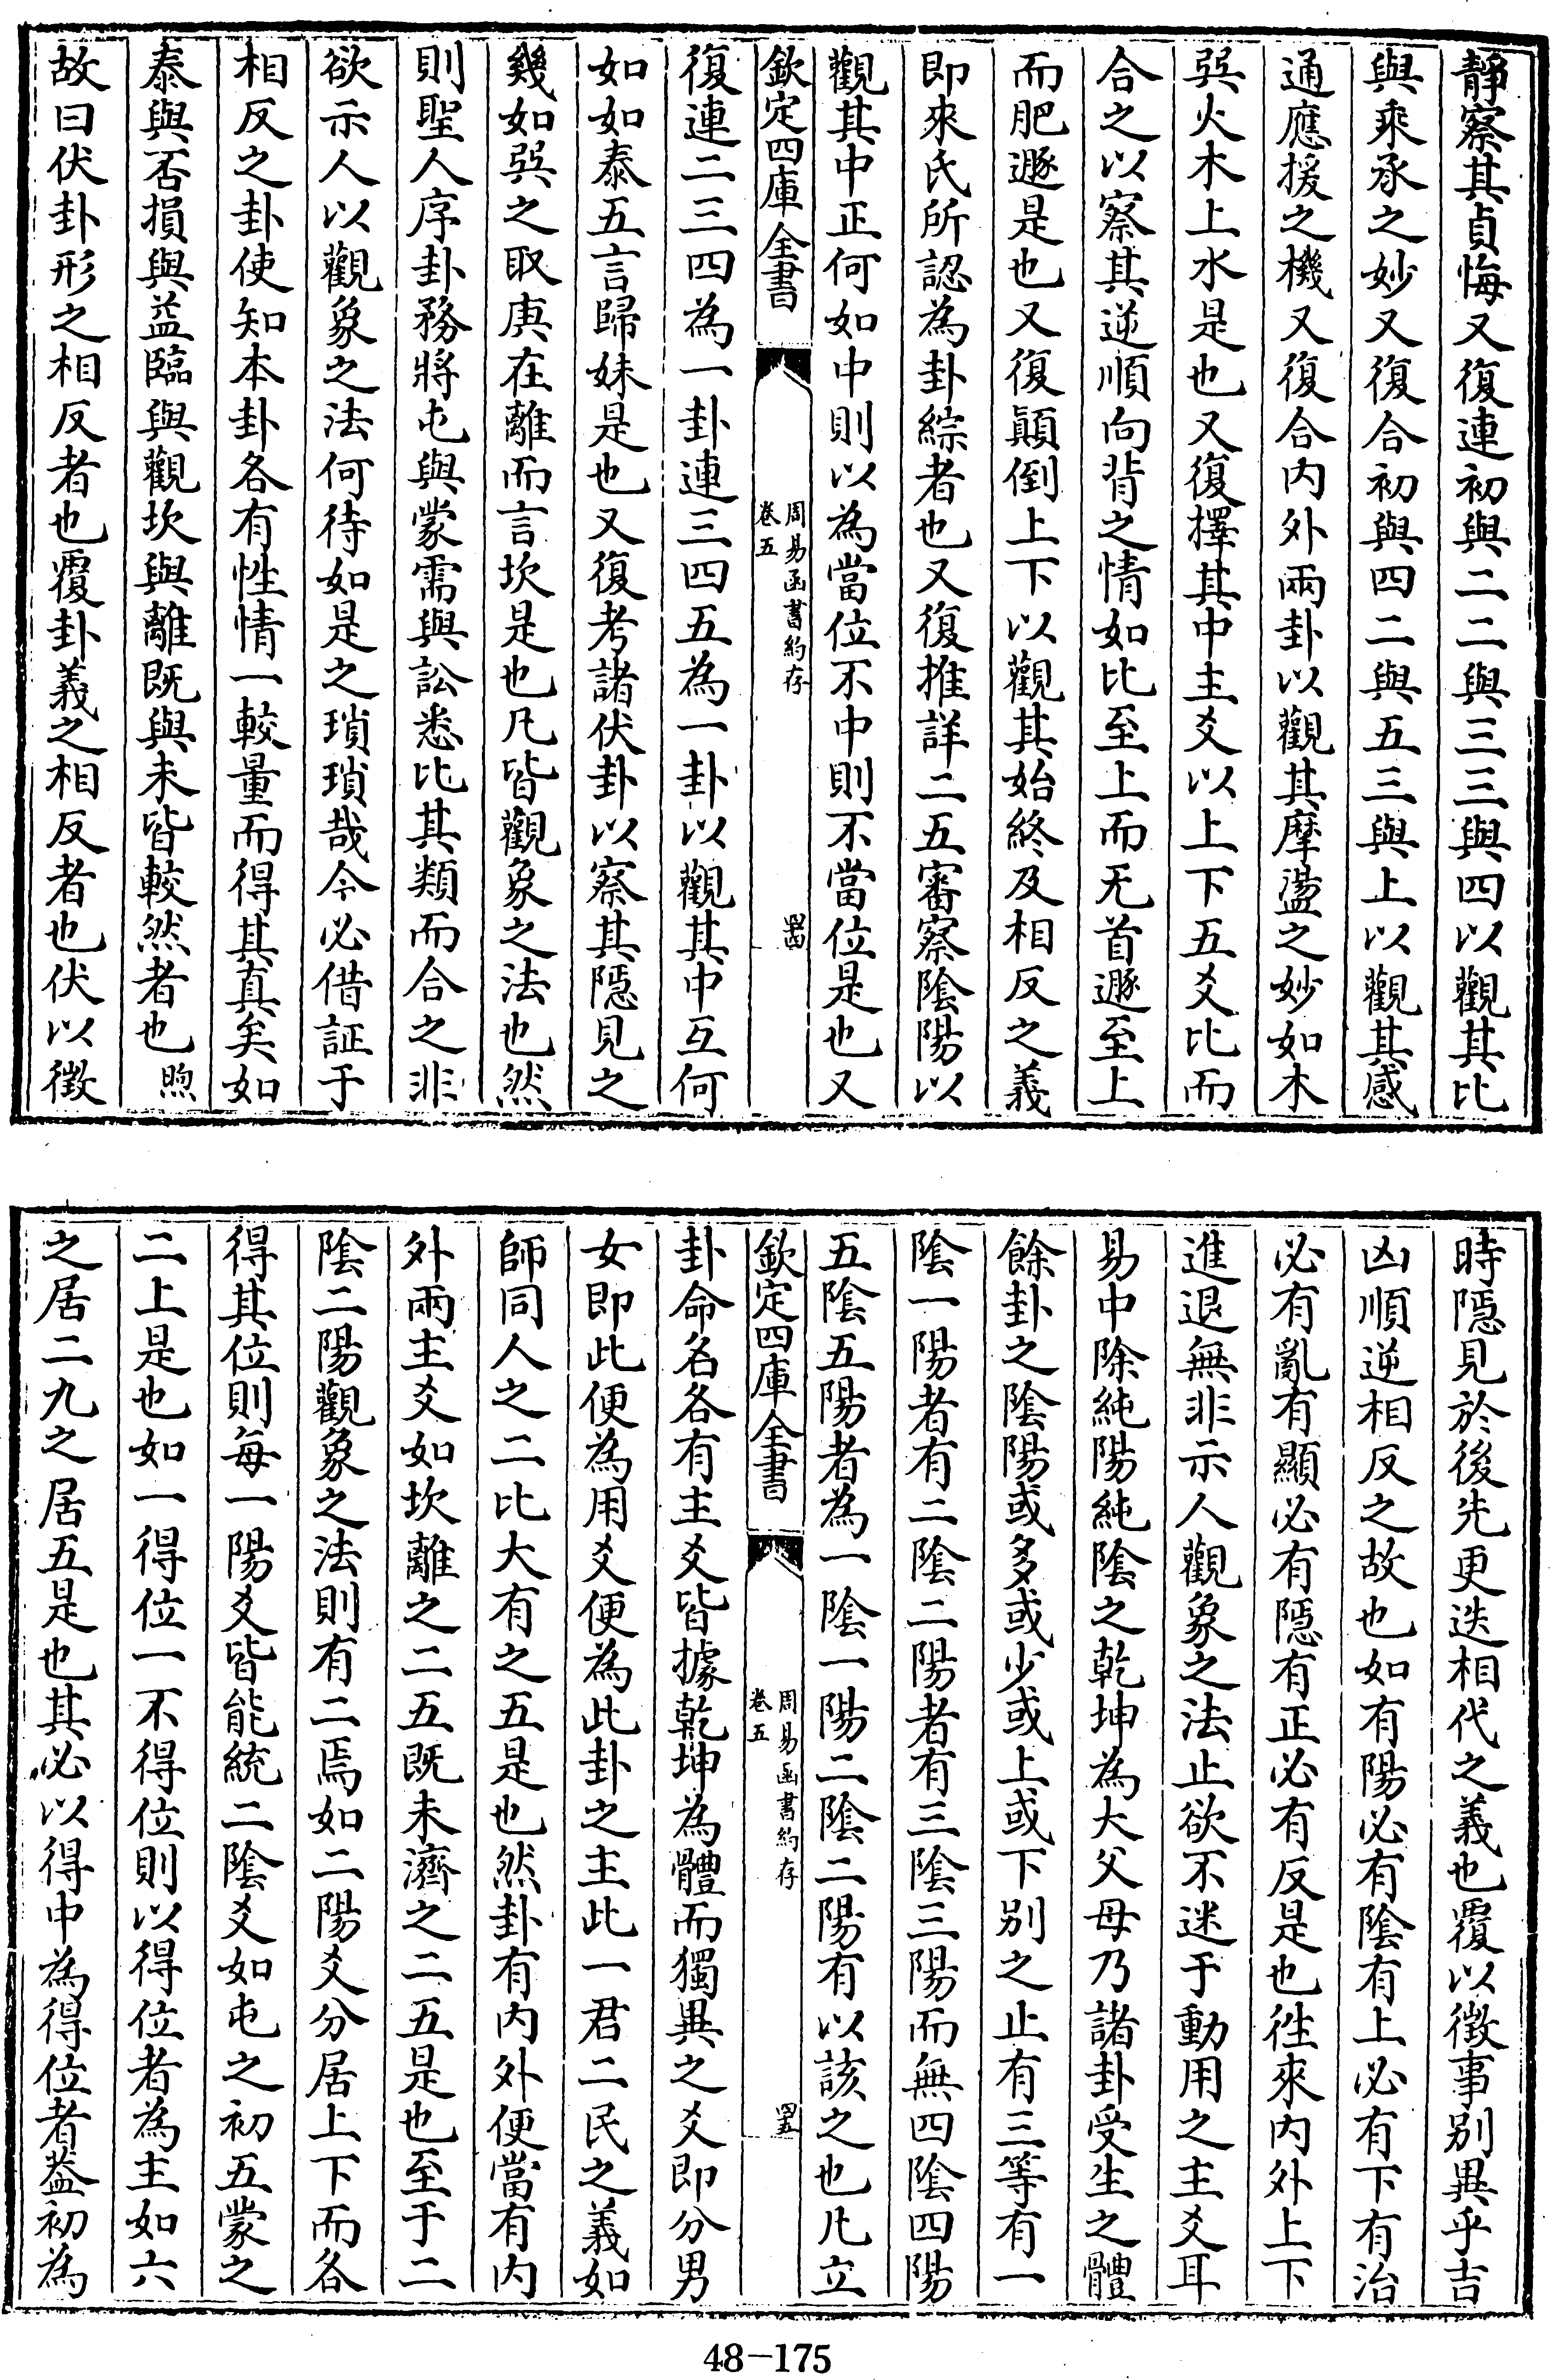 靜察其貞悔又復連初與二二與三三與四以觀其比
與乘承之妙又復合初與四二與五三與上以觀其感
通應援之機又復合内外兩卦以觀其摩盪之妙如木
巽火木上水是也又復擇其中主爻以上下五爻比而
合之以察其逆順向背之情如比至上而无首遯至上
而肥遯是也又復顛倒上下以觀其始終及相反之義
即來氏所認為卦綜者也又復推詳二五審察陰陽以
觀其中正何如中則以為當位不中則不當位是也又
欽定四庫全書
周易函書約存
卷五
四
復連二三四為一卦連三四五為一卦以觀其中互何
如如泰五言歸妹是也又復考諸伏卦以察其隱見之
幾如巽之取庚在離而言坎是也凡皆觀象之法也然
則聖人序卦務將屯與蒙需與訟悉比其類而合之非
欲示人以觀象之法何待如是之瑣瑣哉今必借証于
相反之卦使知本卦各有性情一較量而得其真矣如
泰與否損與益臨與觀坎與離既與未皆較然者也煦
故曰伏卦形之相反者也覆卦義之相反者也伏以徵
時隱見於後先更迭相代之義也覆以徵事别異乎吉
凶順逆相反之故也如有陽必有陰有上必有下有治
必有亂有顯必有隱有正必有反是也徃來内外上下
進退無非示人觀象之法止欲不迷于動用之主爻耳
易中除純陽純陰之乾坤為大父母乃諸卦受生之體
餘卦之陰陽或多或少或上或下别之止有三等有一
陰一陽者有二陰二陽者有三陰三陽而無四陰四陽
五陰五陽者為一陰一陽二陰二陽有以該之也凡立
欽定四庫全書
周易函書約存
卷五
卦命名各有主爻皆據乾坤為體而獨異之爻即分男
女即此便為用爻便為此卦之主此一君二民之義如
師同人之二比大有之五是也然卦有内外便當有内
外兩主爻如坎離之二五既未濟之二五是也至于二
陰二陽觀象之法則有二焉如二陽爻分居上下而各
得其位則每一陽爻皆能統二陰爻如屯之初五蒙之
二上是也如一得位一不得位則以得位者為主如六
之居二九之居五是也其必以得中為得位者葢初為
48-175